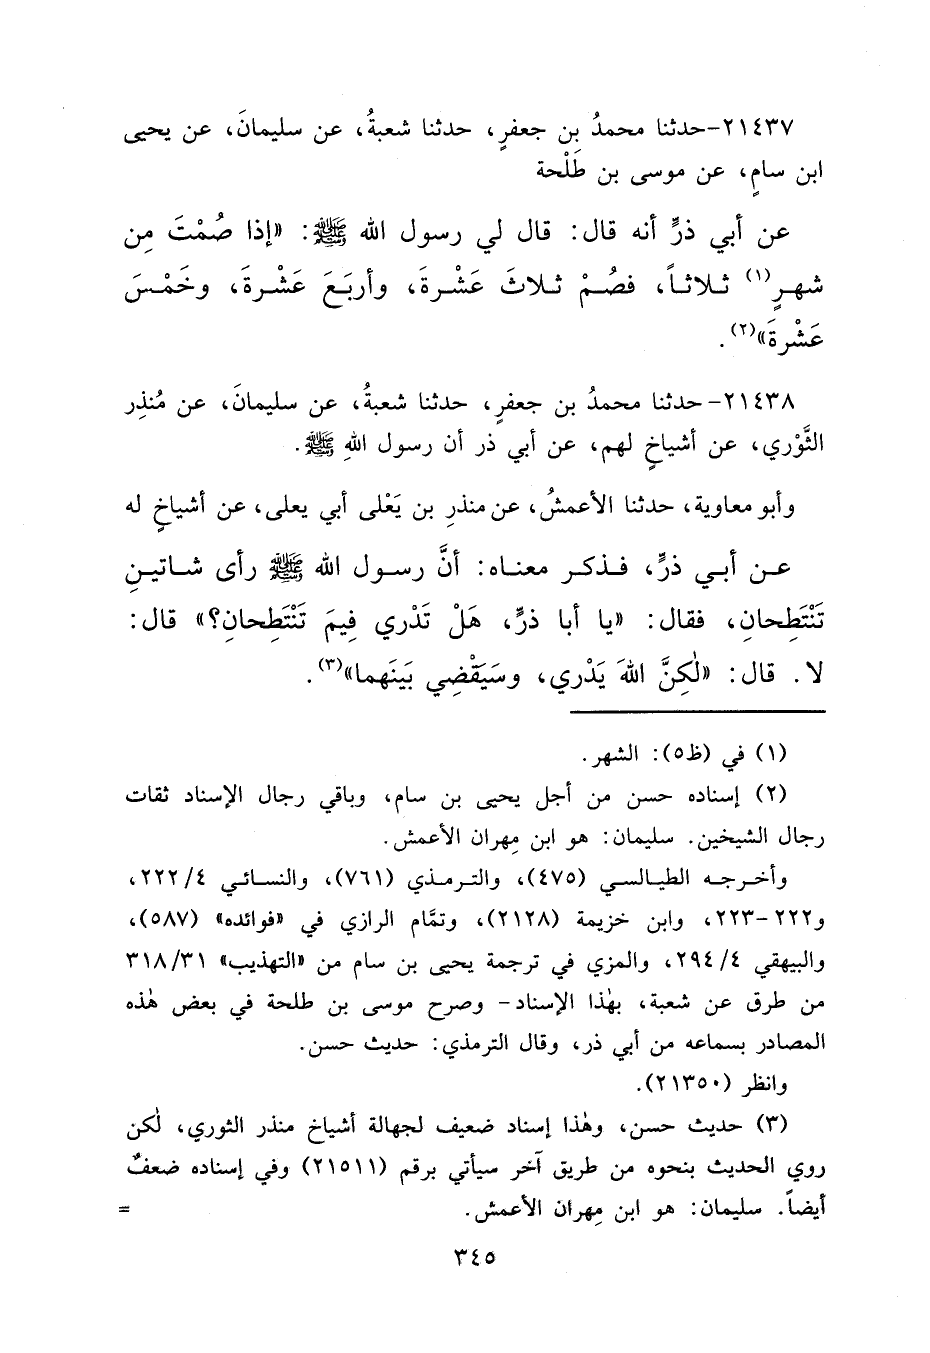 ٢١٤٣٧-حدثنا محمدُ بن جعفرٍ، حدثنا شعبةُ، عن سليمانَ، عن يحيى
ابن سامٍ، عن موسى بن طَلْحة
عن أبي ذرٍّ أنه قال: قال لي رسول الله ﷺ: «إذا صُمْتَ مِن
شهرٍ(١) ثلاثاً، فصُمْ ثلاثَ عَشْرةَ، وأربَعَ عَشْرةَ، وخَمْسَ
عَشْرةَ»(٢).
٢١٤٣٨- حدثنا محمدُ بن جعفرٍ، حدثنا شعبةُ، عن سليمانَ، عن مُنذِر
الثَّوْري، عن أشياخٍ لهم، عن أبي ذر أن رسول اللهِ ﷺ.
وأبو معاوية، حدثنا الأعمشُ، عن منذرِ بن يَعْلى أبي يعلى، عن أشياخٍ له
عن أبي ذرٍّ، فذكر معناه: أنَّ رسول الله ﷺ رأى شاتينِ
تَنْتَطِحانِ، فقال: «يا أبا ذرٍّ، هَلْ تَدْري فِيمَ تَنْتَطِحانِ؟» قال:
لا. قال: «لٰكِنَّ اللهَ يَدْري، وسَيَقْضِي بَينَهما»(٣).
(١) في (ظ٥): الشهر.
(٢) إسناده حسن من أجل يحيى بن سام، وباقي رجال الإسناد ثقات
رجال الشيخين. سليمان: هو ابن مِهران الأعمش.
وأخرجه الطيالسي (٤٧٥)، والترمذي (٧٦١)، والنسائي ٢٢٢/٤،
و٢٢٢-٢٢٣، وابن خزيمة (٢١٢٨)، وتمَّام الرازي في «فوائده» (٥٨٧)،
والبيهقي ٢٩٤/٤، والمزي في ترجمة يحيى بن سام من «التهذيب» ٣١٨/٣١
من طرق عن شعبة، بهٰذا الإسناد- وصرح موسى بن طلحة في بعض هٰذه
المصادر بسماعه من أبي ذر، وقال الترمذي: حديث حسن.
وانظر (٢١٣٥٠).
(٣) حديث حسن، وهٰذا إسناد ضعيف لجهالة أشياخ منذر الثوري، لٰكن
روي الحديث بنحوه من طريق آخر سيأتي برقم (٢١٥١١) وفي إسناده ضعفٌ
أيضاً. سليمان: هو ابن مِهران الأعمش. =
٣٤٥